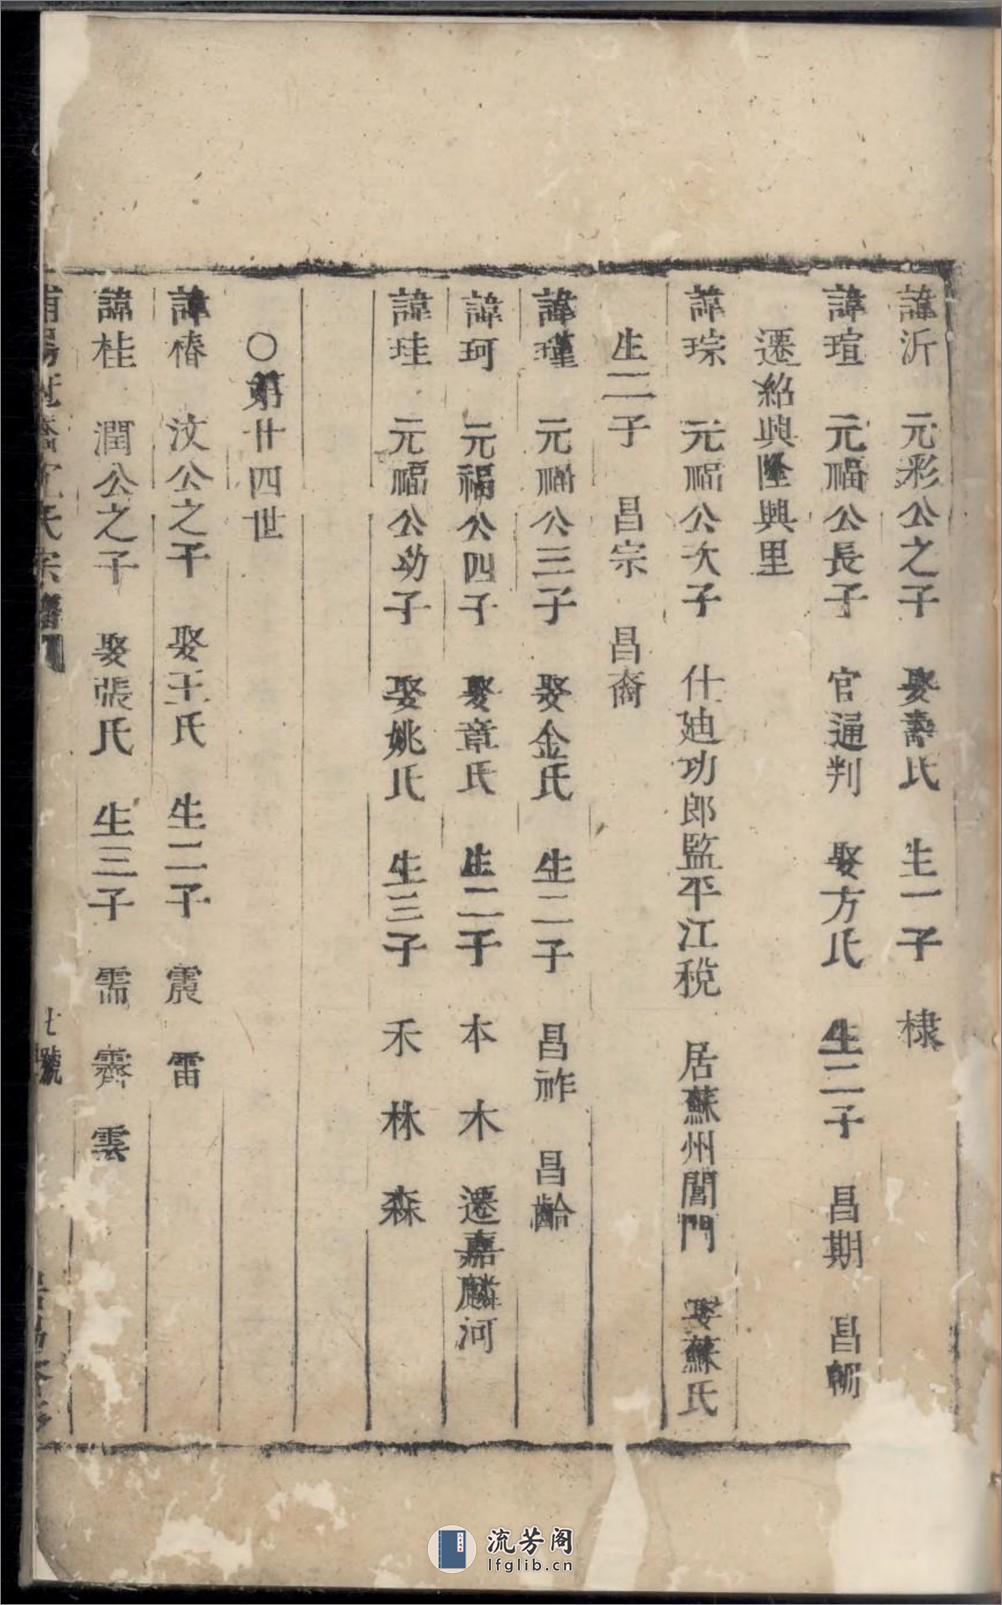 諱沂　元彩公之子　娶壽氏　生一子　棣
諱瑄　元福公長子　官通判　娶方氏　生二子　昌期　昌
遷紹興隆興里
諱琮　元福公次子　仕廸功郎監平江稅　居蘇州閶門　娶蘇氏
生二子　昌宗　昌裔
諱瑾　元福公三子　娶金氏　生二子　昌祚　昌齡
諱珂　元福公四子　娶章氏　生二子　本　木　遷嘉麟河
諱珪　元福公幼子　娶姚氏　生三子　禾　林　森
○第廿四世
諱椿　汶公之子　娶王氏　生二子　震　雷
諱桂　潤公之子　娶張氏　生三子　需　霽　雲
氏宗譜
號
流芳阁
lfglib.cn